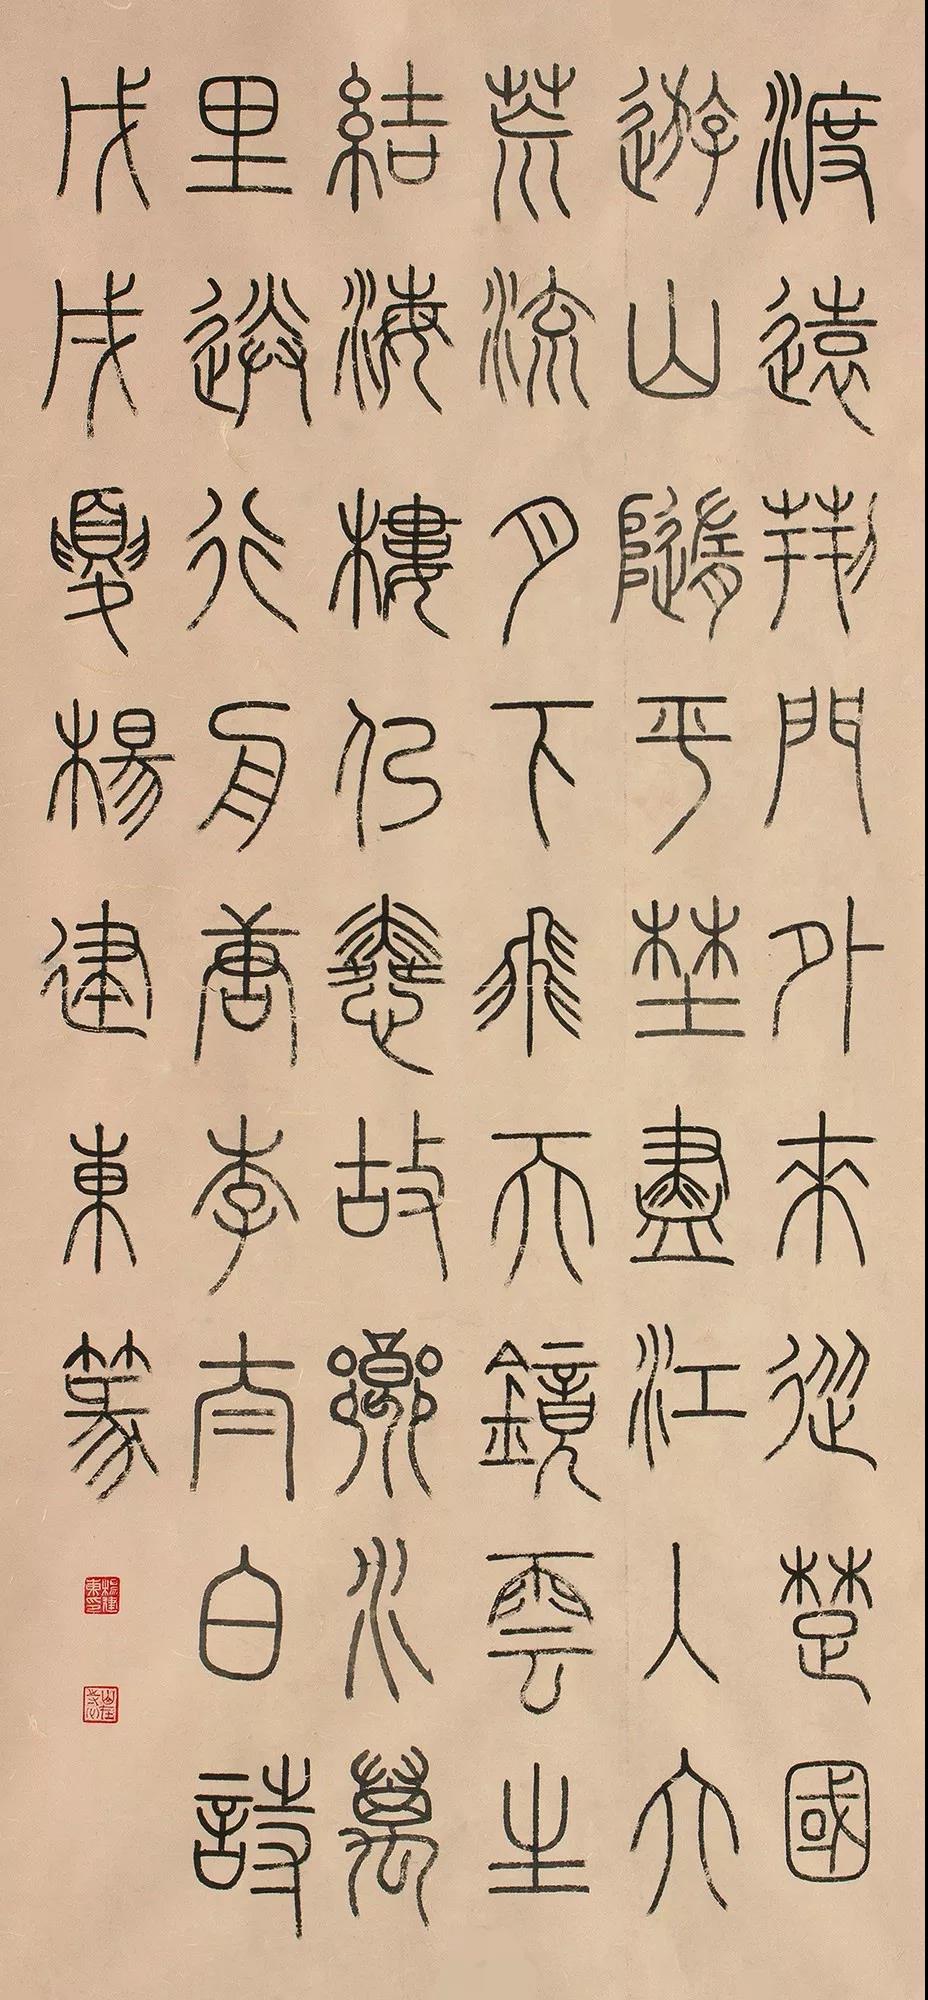 渡遠荊門外來從楚國
遊山隨平埜盡江入大
荒流月下飛天鏡雲生
結海樓仍憐故鄉水萬
里送行舟唐李太白詩
戊戌夏楊建東篆
楊建東印